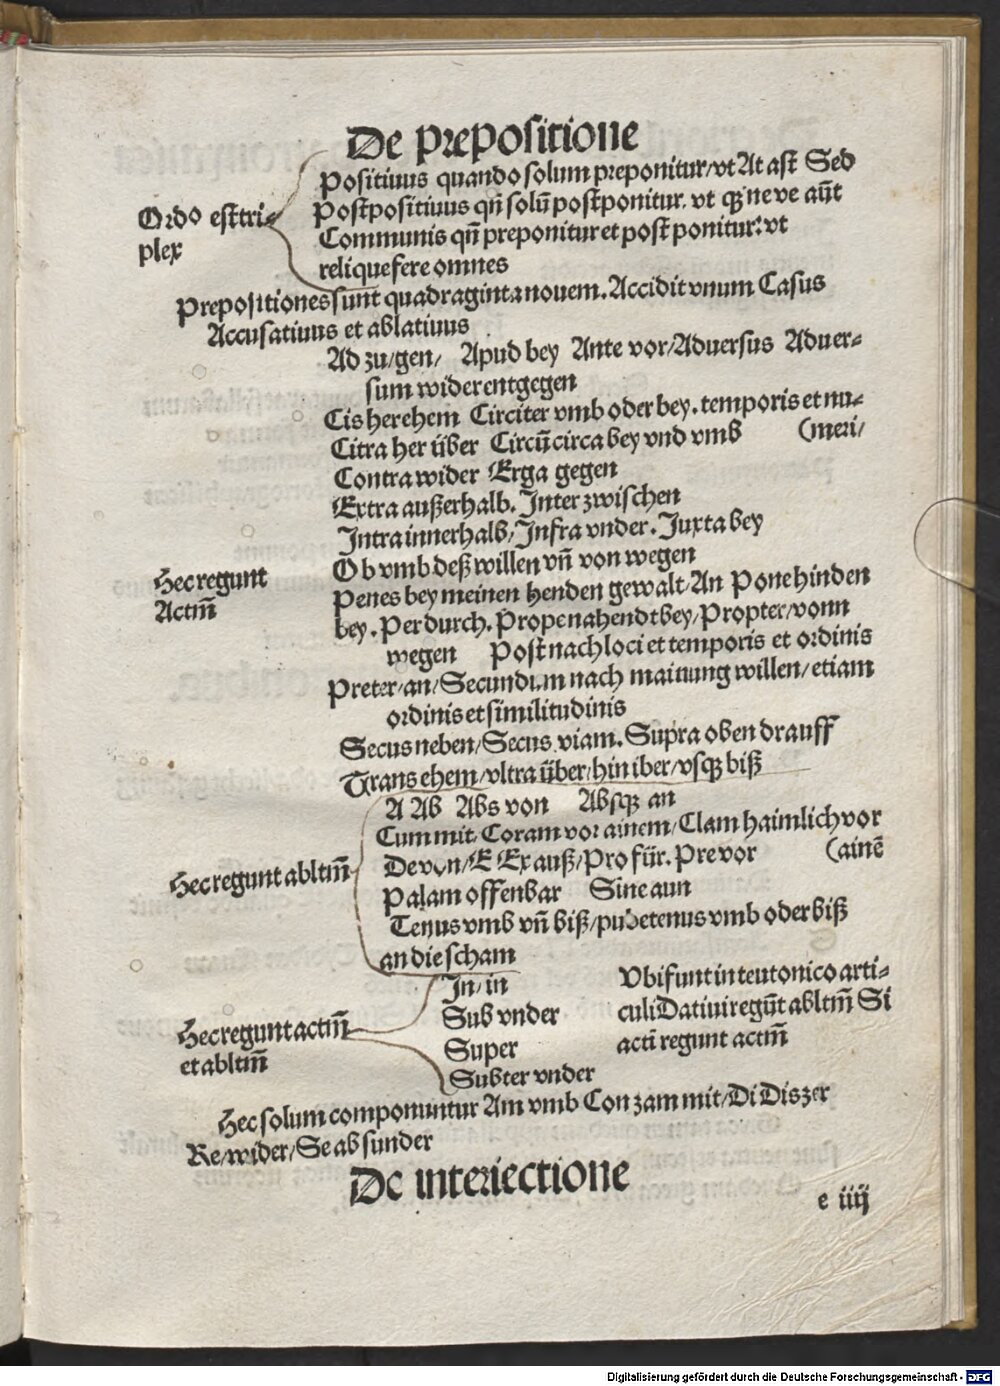 De prepositione
Positiuus quando solum preponitur/vt At ast Sed
Ordo est tri-
plex
Postpositiuus qñ solũ postponitur. vt qꝫ ne ve aũt
Communis qñ preponitur et post ponitur: vt
relique fere omnes
Prepositiones sunt quadraginta nouem. Accidit vnum Casus
Accusatiuus et ablatiuus
Ad zu/gen/ Apud bey Ante vor/Aduersus Aduer-
sum wider entgegen
Cis herehem Circiter vmb oder bey. temporis et nu-
Citra her über Circũ circa bey vnd vmb (meri/
Contra wider Erga gegen
Extra außerhalb. Inter zwischen
Intra innerhalb/Infra vnder. Iuxta bey
Hec regunt
Actm̃
Ob vmb deß willen vñ von wegen
Penes bey meinen henden gewalt/An Pone hinden
bey. Per durch. Prope nahendt bey/Propter/vonn
wegen Post nach loci et temporis et ordinis
Preter/an/Secundum nach mainung willen/etiam
ordinis et similitudinis
Secus neben/Secus viam. Supra oben drauff
Trans ehem/vltra über/hin iber/vsqꝫ biß
A Ab Abs von Absqꝫ an
Cum mit/Coram vor ainem/Clam haimlich vor
Hec regunt abltm̃
De von/E Ex auß/Pro für. Pre vor (ainẽ
Palam offenbar Sine aun
Tenus vmb vñ biß/pubetenus vmb oder biß
an die scham
In/in Vbi sunt in teutonico arti-
Hec regunt actm̃
et abltm̃
Sub vnder culi Datiui regũt abltm̃ Si
Super acti regunt actm̃
Subter vnder
Hec solum componuntur Am vmb Con zam mit/Di Dis zer
Re/wider/Se absunder
De interiectione
e iiij
Digitalisierung gefördert durch die Deutsche Forschungsgemeinschaft - DFG